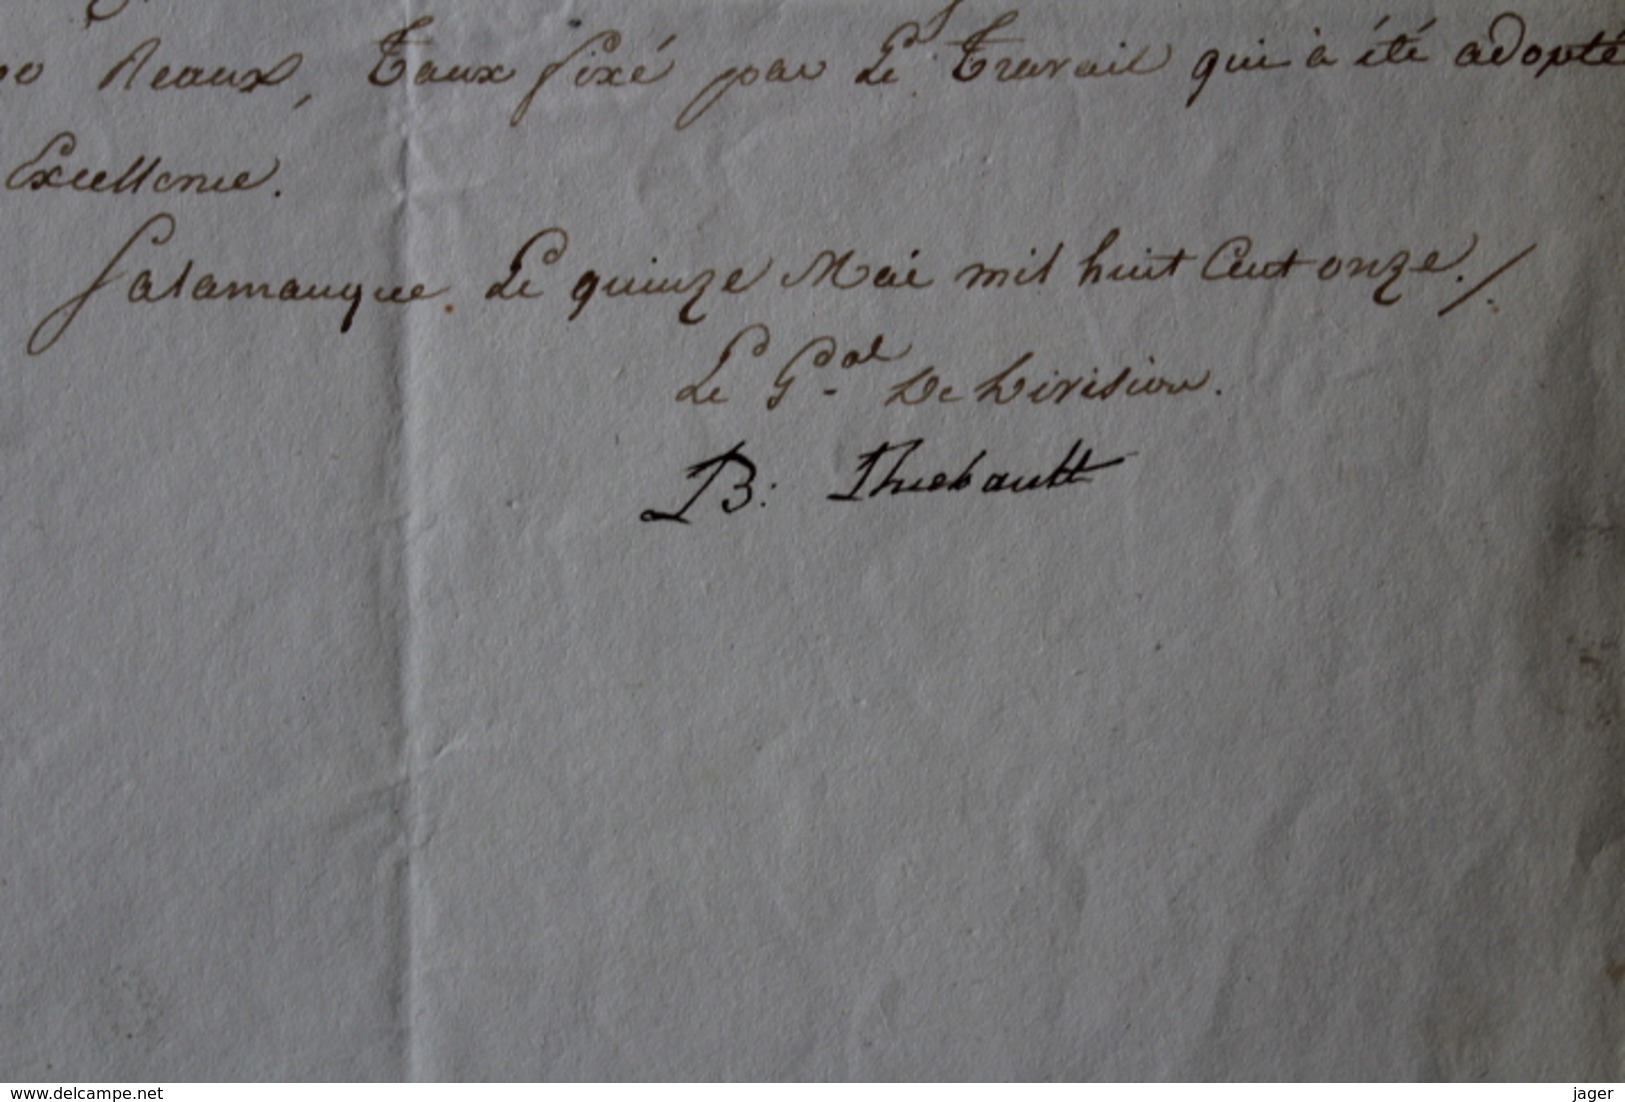 00 Reaux, Taux fixé par Le Travail qui à été adopté
Excellence.
Salamanque. Le quinze Mai mil huit Cent onze./.
Le G.al De Division.
B: Thiebault
www.delcampe.net
jager